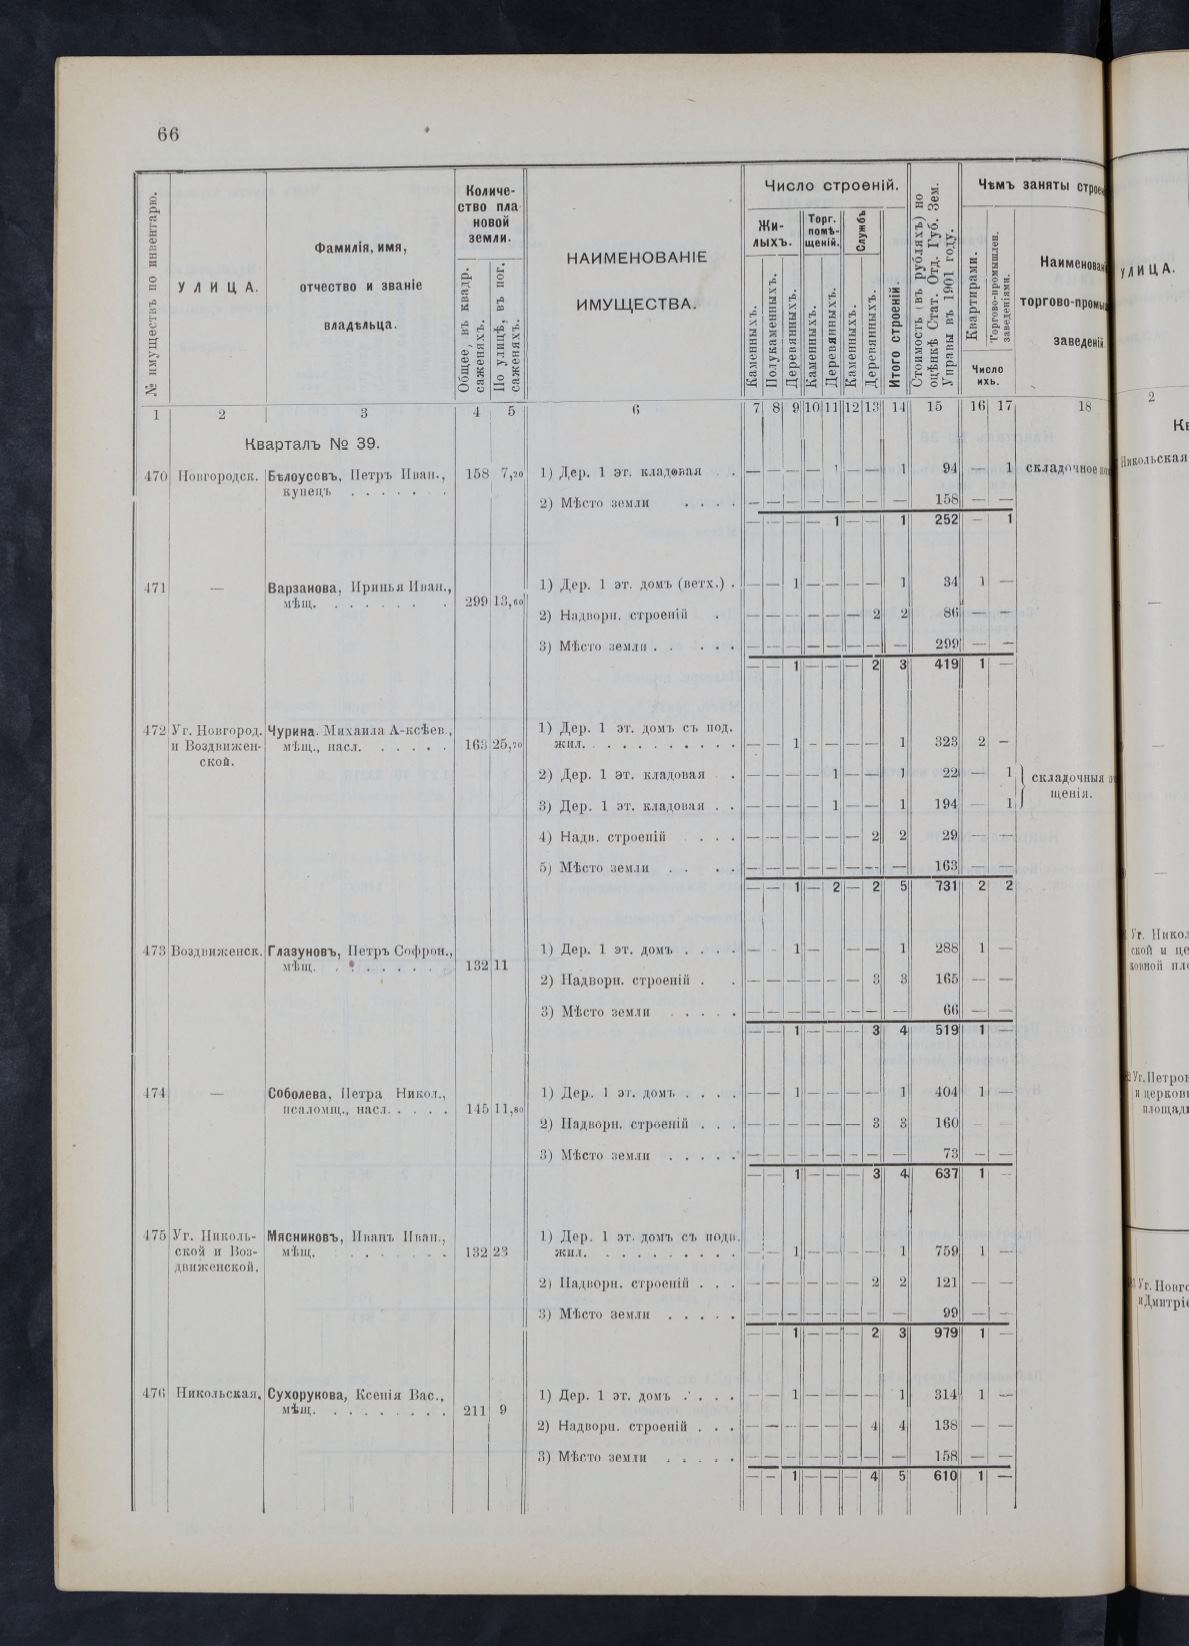 66
№ имуществъ по инвентарю.
УЛИЦА.
Фамилія, имя,
отчество и званіе
владѣльца.
Количе-
ство пла
новой
земли.
Общее, въ квадр.
саженяхъ.
По улицѣ, въ пог.
саженяхъ.
НАИМЕНОВАНІЕ
ИМУЩЕСТВА.
Число строеній.
Жи-
лыхъ.
Торг.
помѣ-
щеній.
Службъ
Каменныхъ.
Полукаменныхъ.
Деревянныхъ.
Каменныхъ.
Деревянныхъ.
Каменныхъ.
Деревянныхъ.
Итого строеній.
Стоимость (въ рубляхъ) по
оцѣнкѣ Стат. Отд. Губ. Зем.
Управы въ 1901 году.
Чѣмъ заняты
Квартирами.
Торгово-промышлен.
заведеніями.
Число
ихъ.
торгово-
1 2 3 4 5 6 7 8 9 10 11 12 13 14 15 16 17 18
Кварталъ № 39.
470 Новгородск. Бѣлоусовъ, Петръ Иван., 158 7,20 1) Дер. 1 эт. кладовая . . — — — — 1 — — 1 94 — 1 складочное
купецъ . . . . . .
2) Мѣсто земли . . . . — — — — — — — — 158 — —
— — — — 1 — — 1 252 — 1
471 — Варзанова, Иринья Иван., 1) Дер. 1 эт. домъ (ветх.) . — — 1 — — — — 1 34 1 —
мѣщ. . . . . . . . 299 13,60
2) Надворн. строеній . — — — — — — 2 2 86 — —
3) Мѣсто земли . . . . . — — — — — — — — 299 — —
— — 1 — — — 2 3 419 1 —
472 Уг. Новгород. Чурина. Михаила А-ксѣев., 1) Дер. 1 эт. домъ съ под.
и Воздвижен- мѣщ., насл. . . . . . 163 25,70 жил. . . . . . . . . . — — 1 — — — — 1 323 2 —
ской.
2) Дер. 1 эт. кладовая . — — — — 1 — — 1 22 — 1 складочныя
3) Дер. 1 эт. кладовая . . — — — — 1 — — 1 194 — 1 щенія.
4) Надв. строеній . . . . — — — — — — 2 2 29 — —
5) Мѣсто земли . . . . — — — — — — — — 163 — —
— — 1 — 2 — 2 5 731 2 2
473 Воздвиженск. Глазуновъ, Петръ Софрон., 1) Дер. 1 эт. домъ . . . . — — 1 — — — 1 288 1 —
мѣщ. . . . . . . . 132 11
2) Надворн. строеній . . — — — — — — 3 3 165 — —
3) Мѣсто земли . . . . . — — — — — — — — 66 — —
— — 1 — — — 3 4 519 1 —
474 — Соболева, Петра Никол., 1) Дер. 1 эт. домъ . . . . — — 1 — — — — 1 404 1 —
псаломщ., насл. . . . . 145 11,80
2) Надворн. строеній . . . — — — — — — 3 3 160 — —
3) Мѣсто земли . . . . . — — — — — — — — 73 — —
— — 1 — — — 3 4 637 1 —
475 Уг. Николь- Мясниковъ, Иванъ Иван., 1) Дер. 1 эт. домъ съ подв.
ской и Воз- мѣщ. . . . . . . . 132 23 жил. . . . . . . . . . — — 1 — — — — 1 759 1 —
движенской.
2) Надворн. строеній . . . — — — — — — 2 2 121 — —
3) Мѣсто земли . . . . . — — — — — — — — 99 — —
— — 1 — — — 2 3 979 1 —
476 Никольская. Сухорукова, Ксенія Вас., 1) Дер. 1 эт. домъ . . . . — — 1 — — — — 1 314 1 —
мѣщ. . . . . . . . . 211 9
2) Надворн. строеній . . . — — — — — — 4 4 138 — —
3) Мѣсто земли . . . . . — — — — — — — — 158 — —
— — 1 — — — 4 5 610 1 —
УЛИЦА.
2
Никольская
Уг. Никол
ской и це
ковной пл
Уг. Петро
и церков
площад
Уг. Новг
и Дмитрі